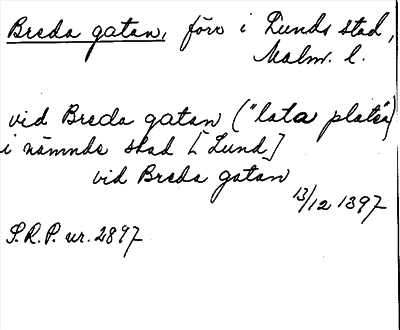 Breda gatan, förr i Lunds stad,
Malm. l.
vid Breda gatan ("lata platea)
i nämnde stad [Lund]
vid Breda gatan
13/12 1397
S.R.P. nr. 2897